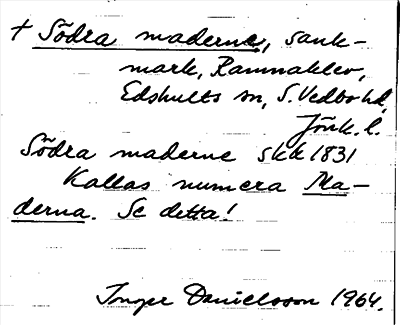 + Södra maderne, sank-
mark, Ramnaklev,
Edshults sn, S. Vedbo hd,
Jönk. l.
Södra maderne skk 1831
Kallas numera Ma-
derna. Se detta!
Inger Danielsson 1964.